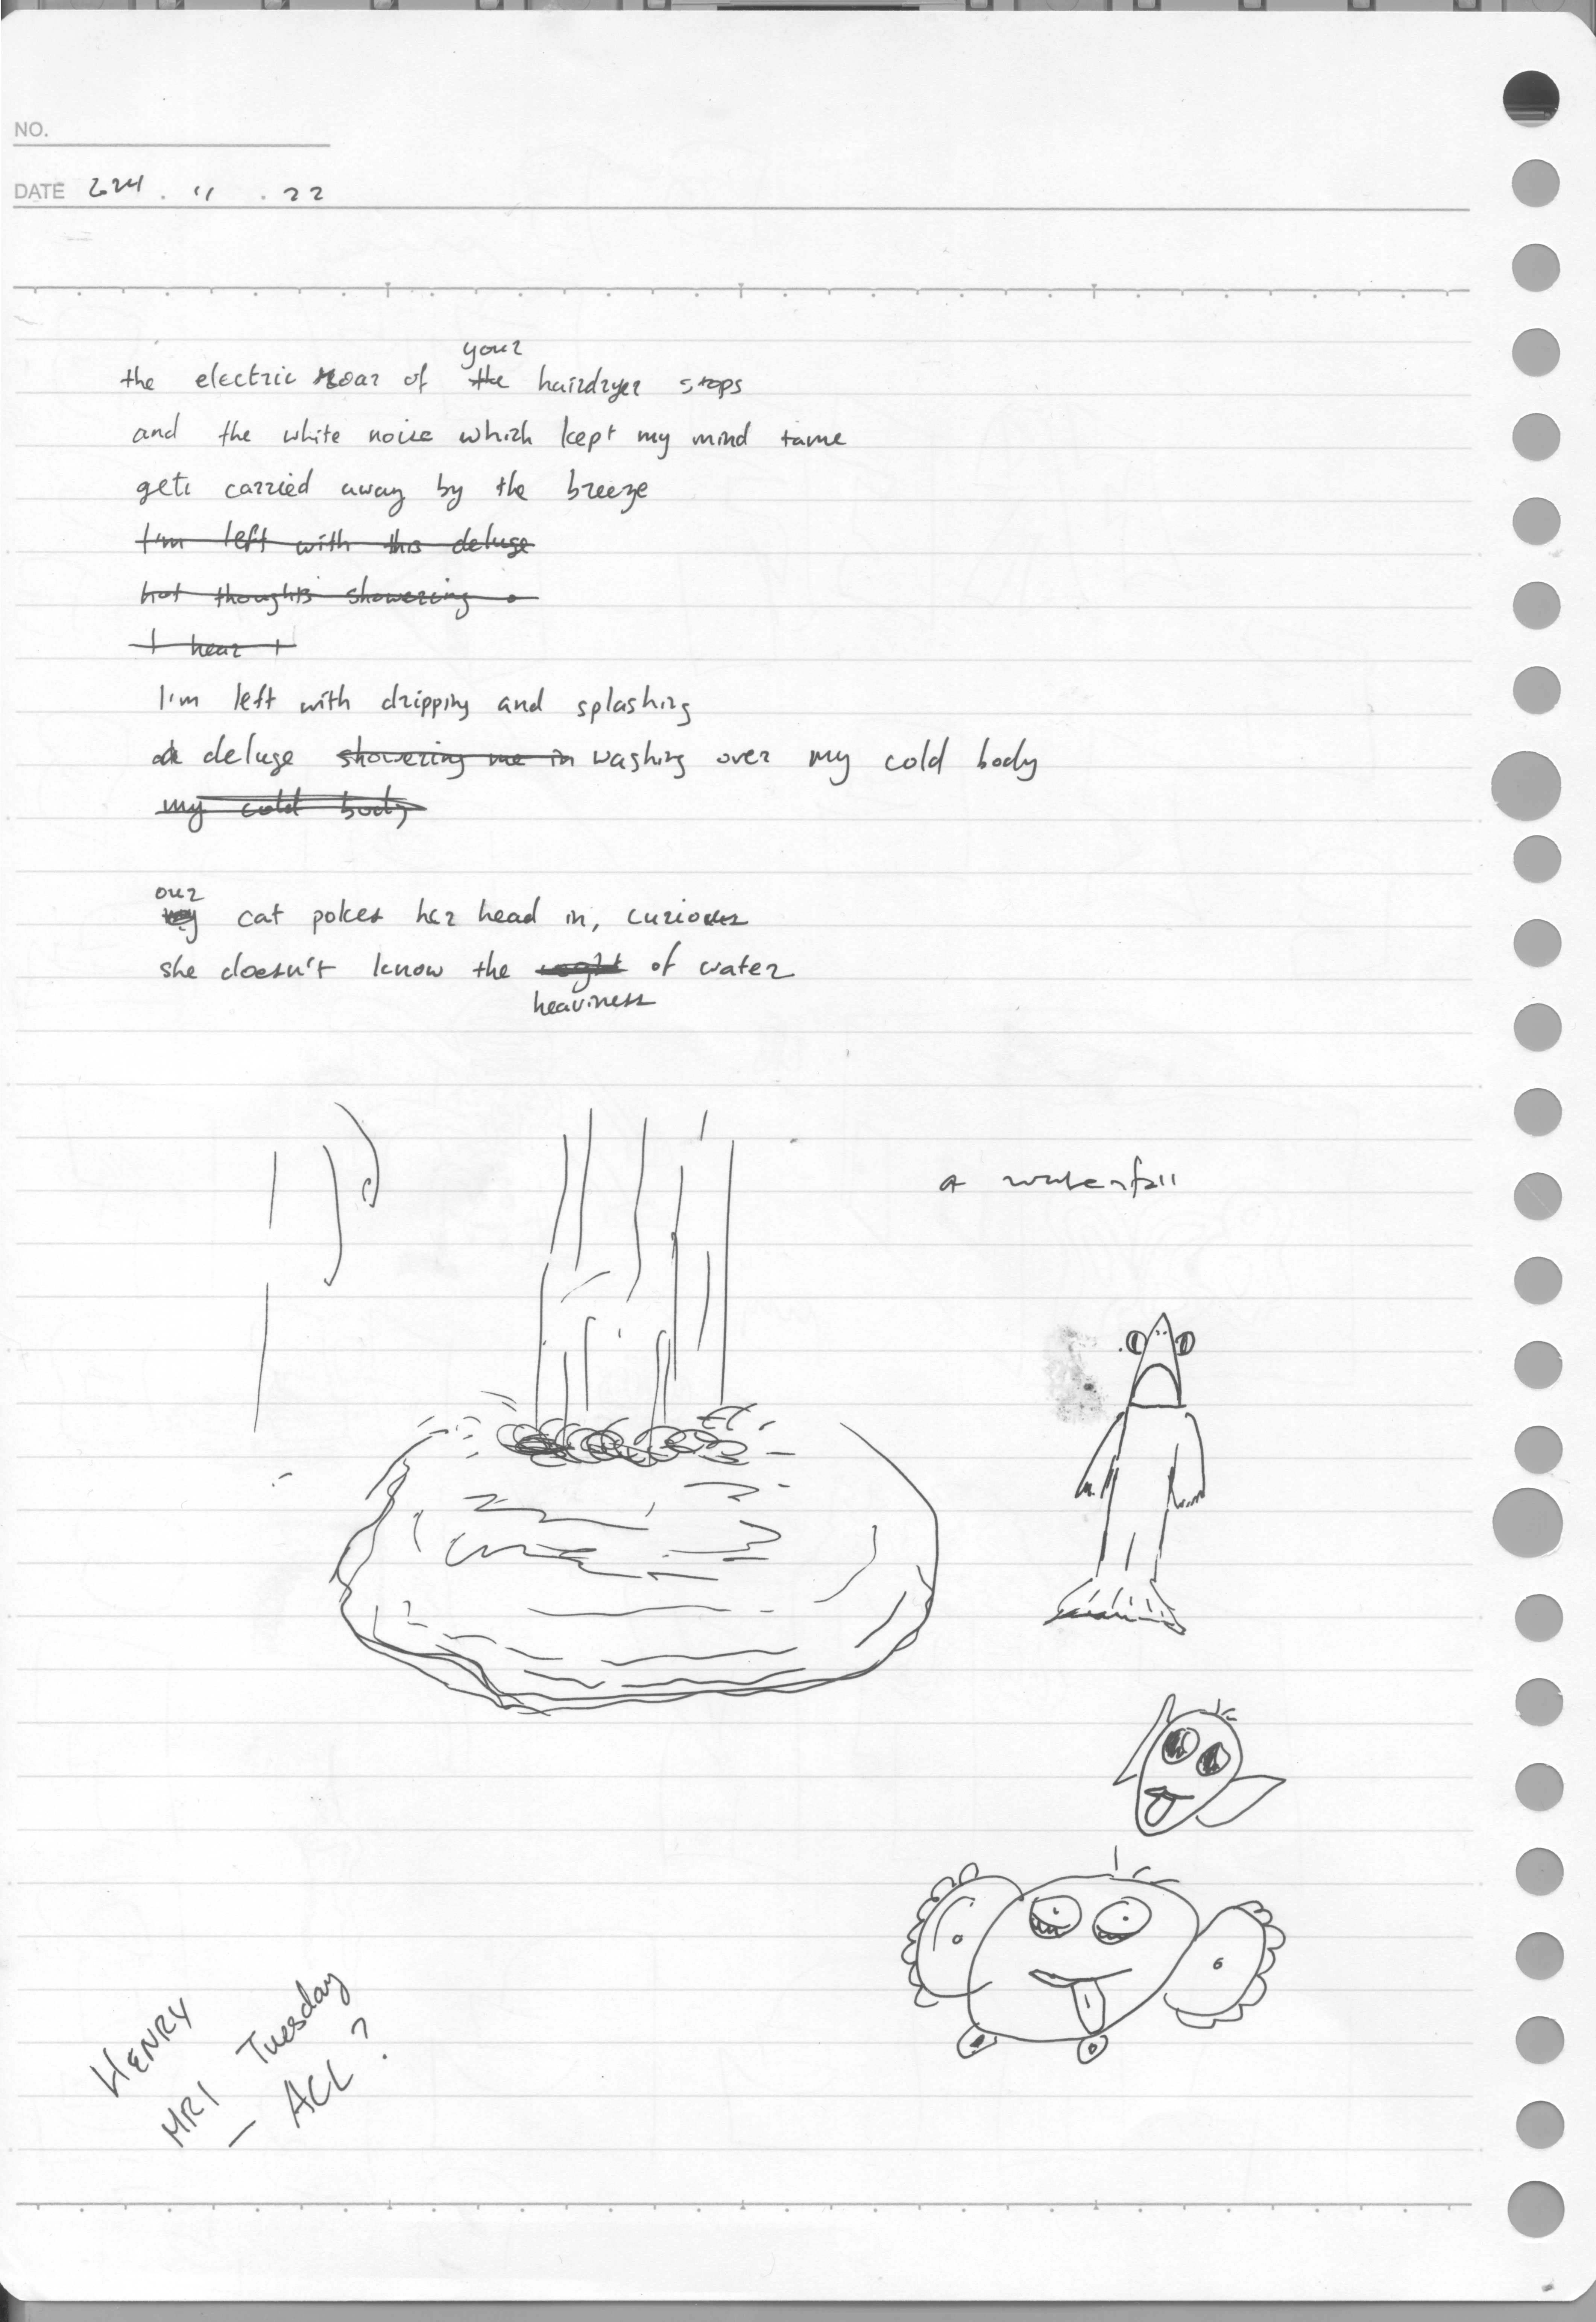 NO.
DATE 2024 . 11 . 22
your
the electric roar of the hairdryer stops
and the white noise which kept my mind tame
gets carried away by the breeze
I'm left with this deluge
hot thoughts showering
I hear
I'm left with dripping and splashing
a deluge showering me in washing over my cold body
my cold body
our
my cat pokes her head in, curious
she doesn't know the weight of water
heaviness
a waterfall
HENRY
MRI Tuesday
— ACL?